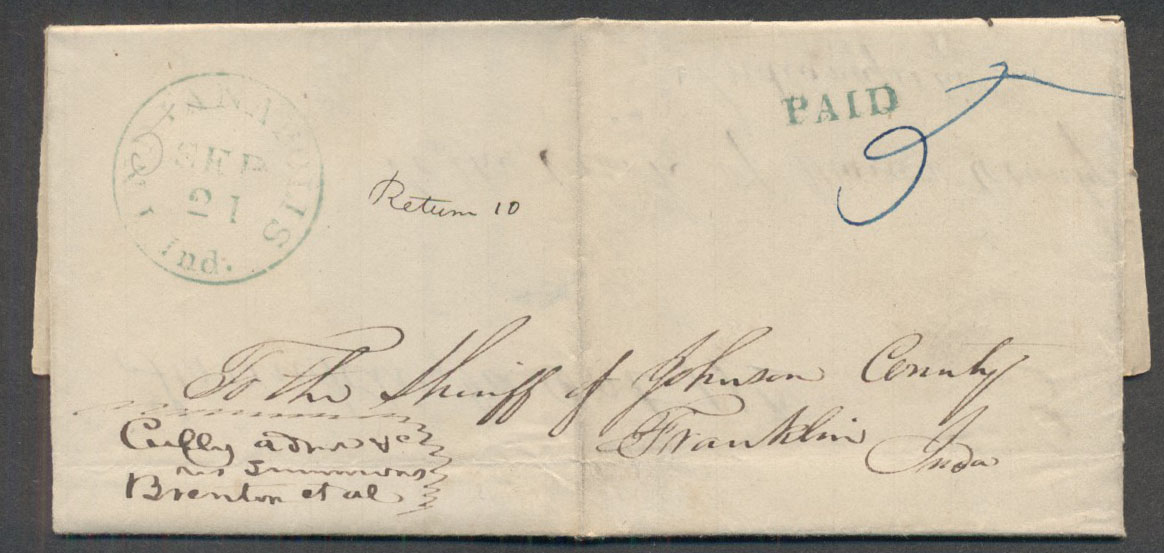 INDIANAPOLIS
SEP
21
Ind.
PAID
5
Return 10
To the Sheriff of Johnson County
Franklin
Inda
Cully admr &c
vs Summons
Brenton et al